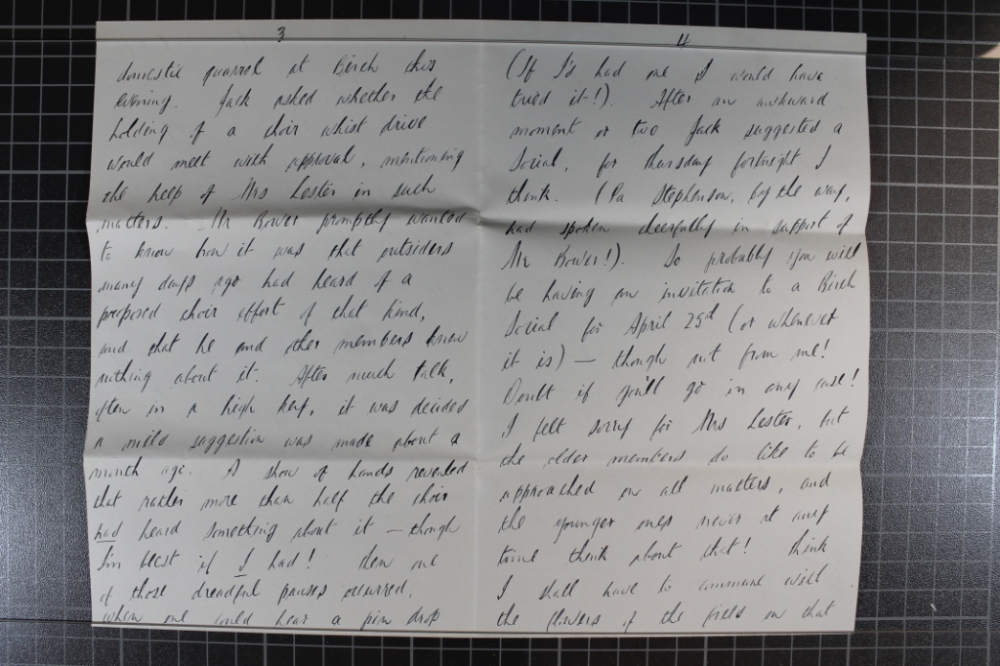 3
domestic quarrel at Birch this
evening. Jack asked whether the
holding of a choir whist drive
would meet with approval, mentioning
the help of Mrs Lester in such
matters. Mr Bower promptly wanted
to know how it was that outsiders
many days ago had heard of a
proposed choir effort of that kind,
and that he and other members knew
nothing about it. After much talk,
often in a high key, it was decided
a mild suggestion was made about a
month ago. A show of hands revealed
that rather more than half the choir
had heard something about it — though
I'm blest if I had! Then one
of those dreadful pauses occurred,
when one could hear a pin drop
4
(If I'd had one I would have
tried it!). After an awkward
moment or two Jack suggested a
Social, for Thursday fortnight I
think. (Pa Stephenson, by the way,
had spoken cheerfully in support of
Mr Bower!). So probably you will
be having an invitation to a Birch
Social for April 25th (or whenever
it is) — though not from me!
Doubt if you'll go in any case!
I felt sorry for Mrs Lester, but
the older members do like to be
approached on all matters, and
the younger ones never at any
time think about that! Think
I shall have to commune with
the flowers of the field on that